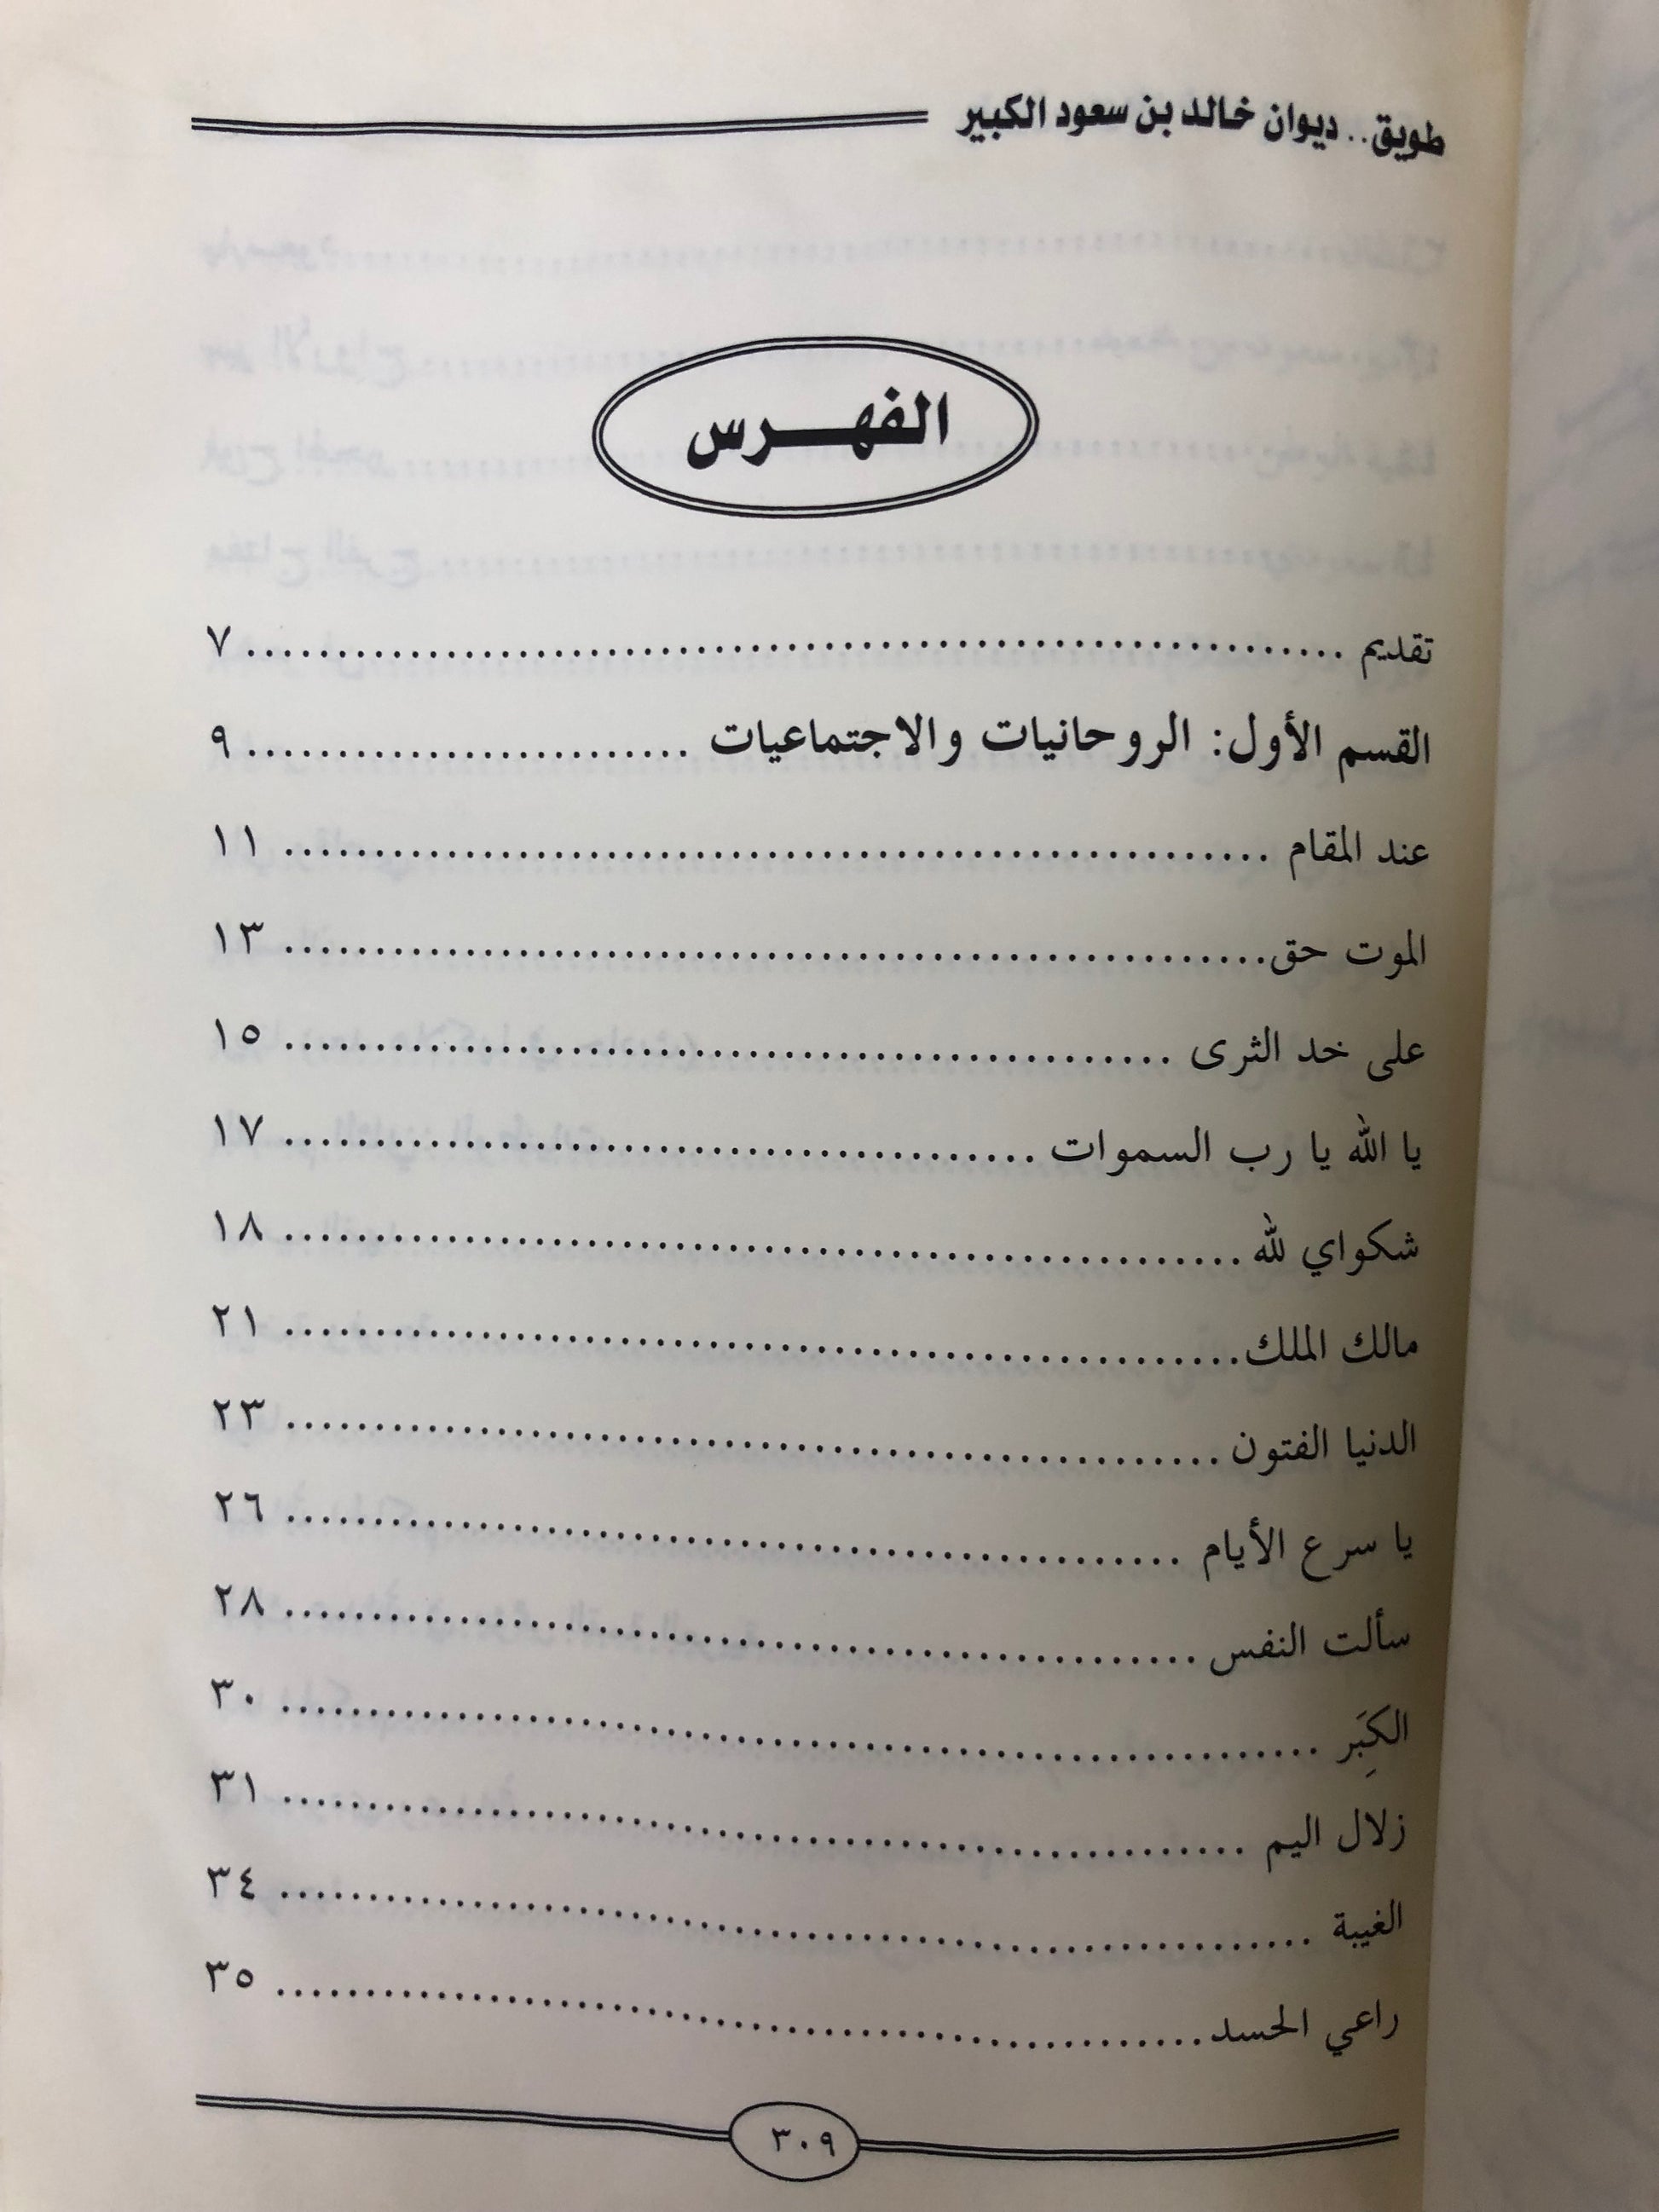 طويق.. ديوان خالد بن سعود الكبير
الفهـــرس
تقديم ............................................................ ٧
القسم الأول: الروحانيات والاجتماعيات ......................... ٩
عند المقام ...................................................... ١١
الموت حق...................................................... ١٣
على خد الثرى ................................................. ١٥
يا الله يا رب السموات .......................................... ١٧
شكواي لله..................................................... ١٨
مالك الملك..................................................... ٢١
الدنيا الفتون .................................................... ٢٣
يا سرع الأيام .................................................. ٢٦
سألت النفس ................................................... ٢٨
الكِبَر .......................................................... ٣٠
زلال اليم ...................................................... ٣١
الغيبة .......................................................... ٣٤
راعي الحسد.................................................... ٣٥
٣٠٩